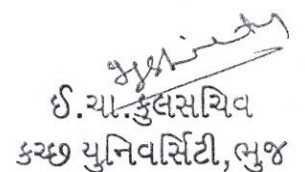 ઈ.ચા.કુલસચિવ
કચ્છ યુનિવર્સિટી, ભુજ